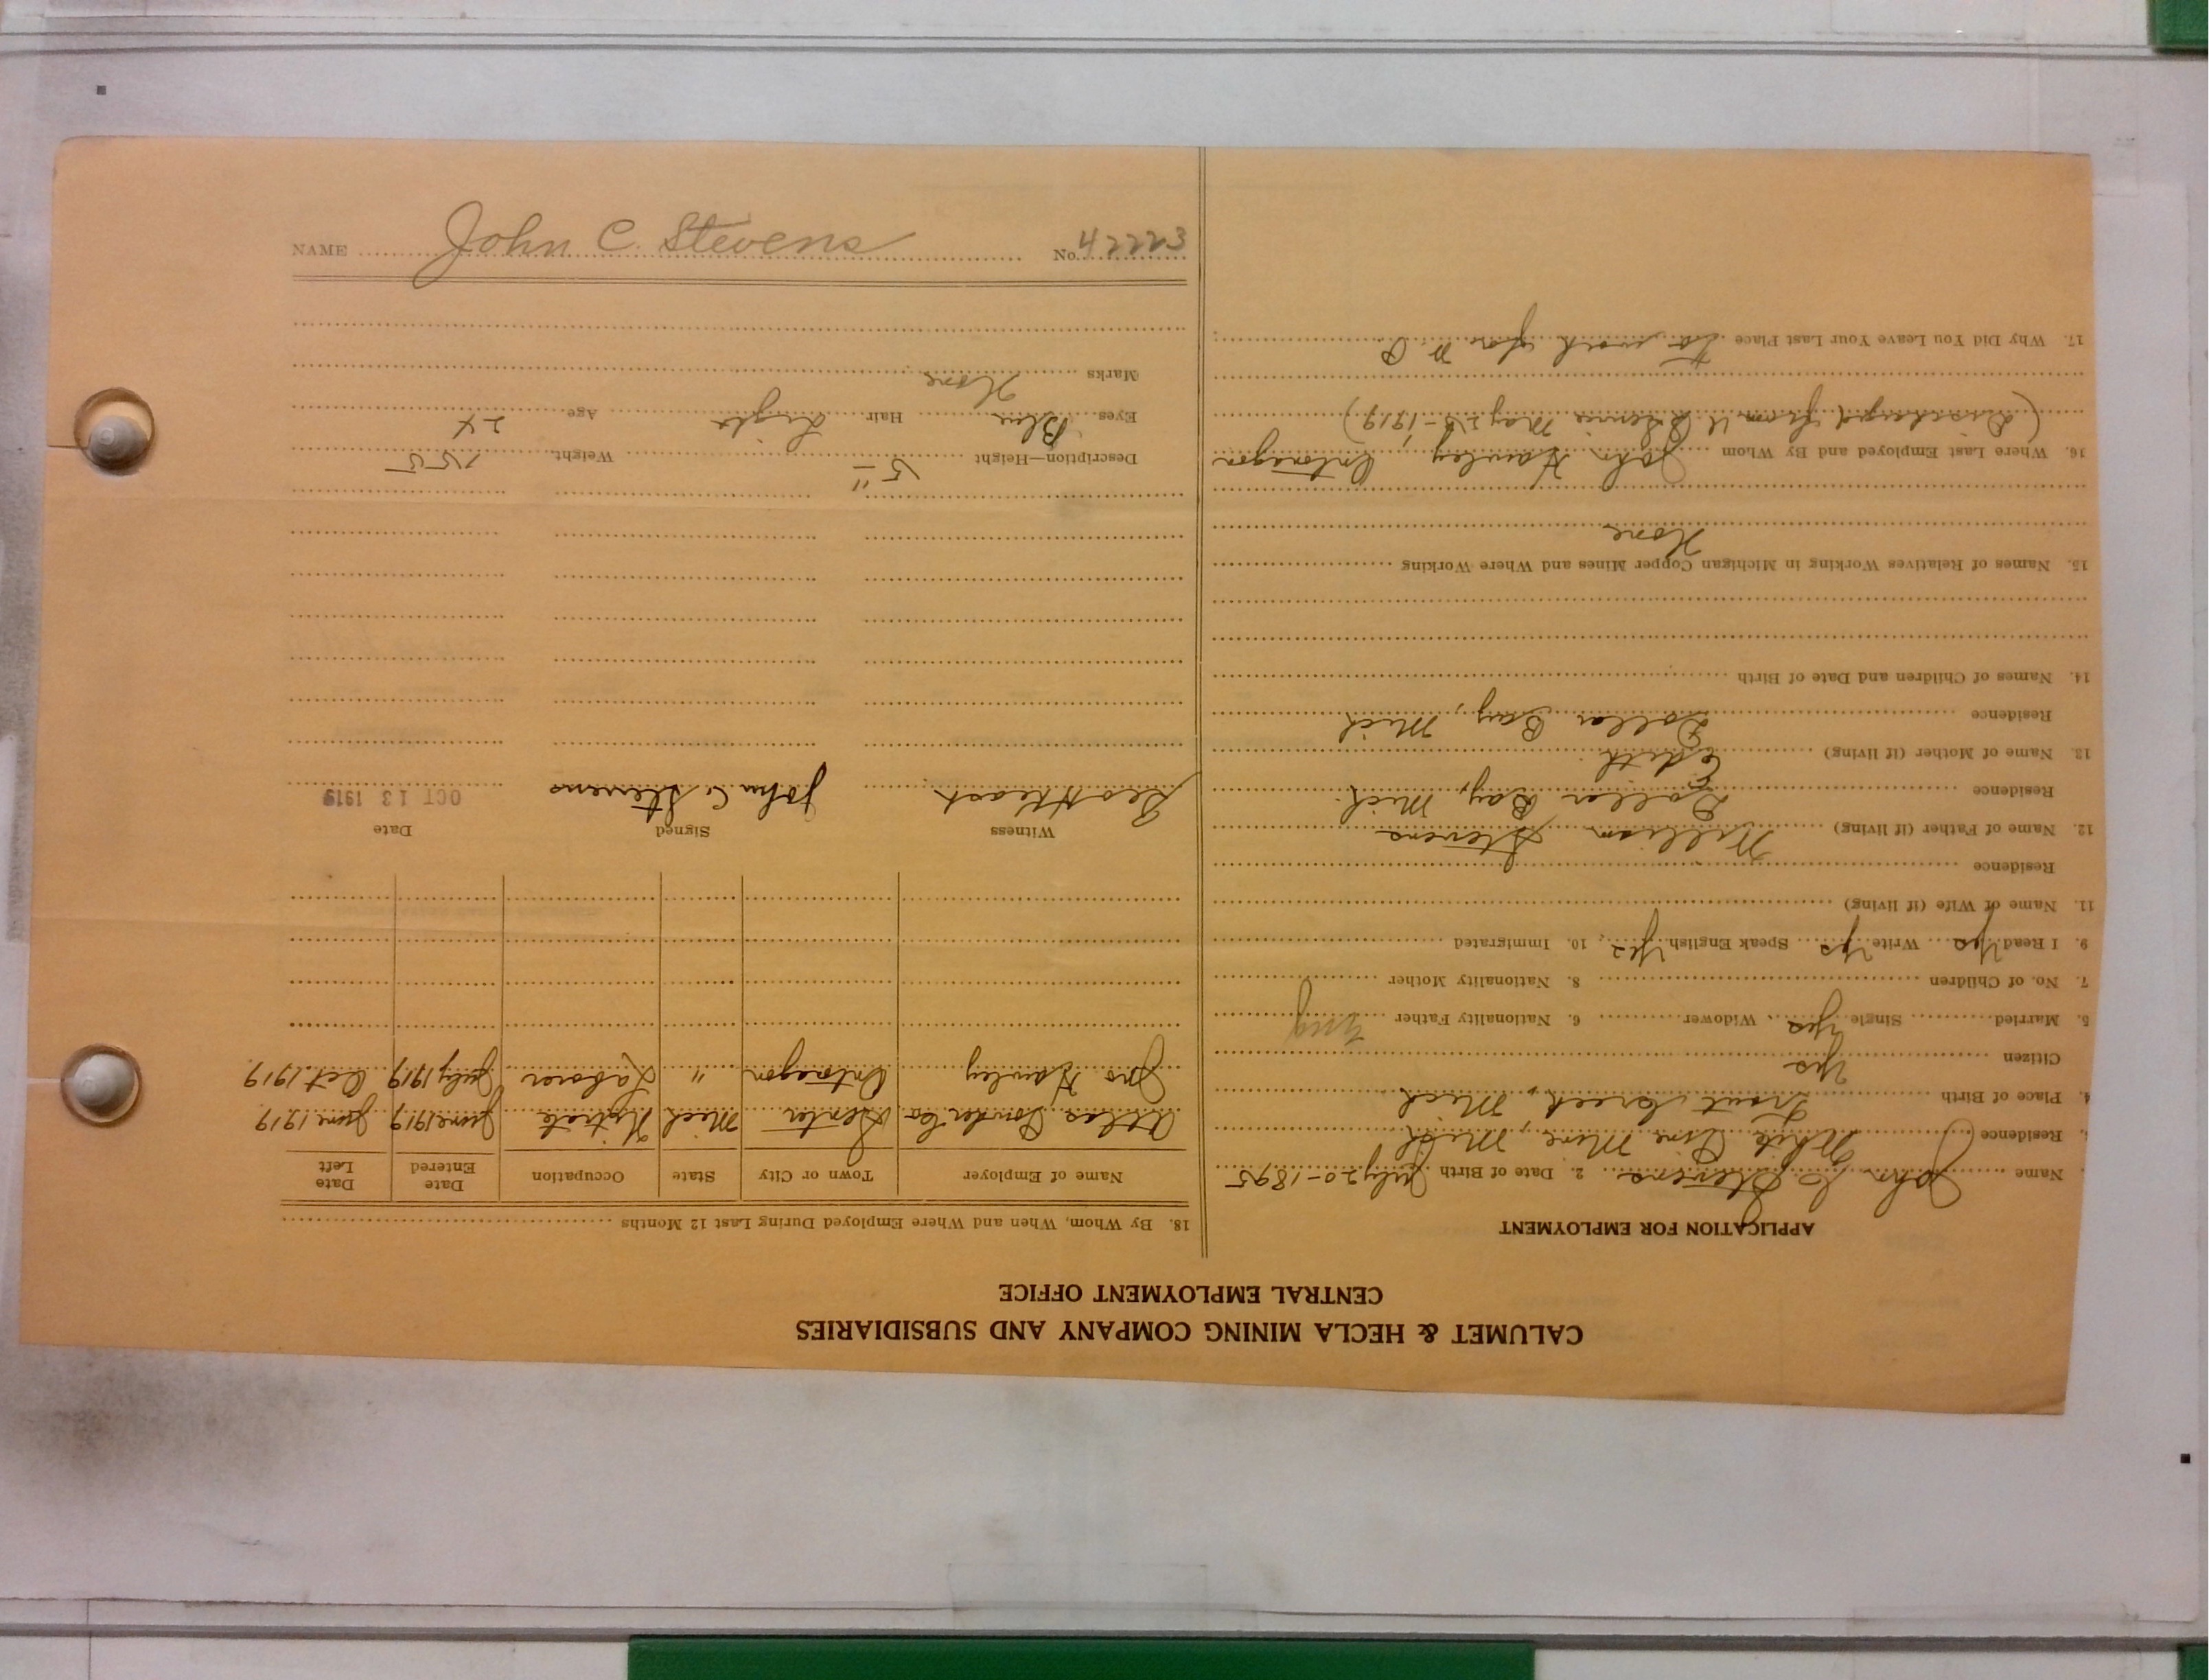 CALUMET & HECLA MINING COMPANY AND SUBSIDIARIES
CENTRAL EMPLOYMENT OFFICE
APPLICATION FOR EMPLOYMENT
Name John C. Stevens 2. Date of Birth July 20-1895
Residence White Pine Mine, Mich
4. Place of Birth Trout Creek, Mich
Citizen Yes
5. Married Single Yes Widower 6. Nationality Father Eng
7. No. of Children 8. Nationality Mother
9. I Read Yes Write Yes Speak English Yes 10. Immigrated
11. Name of Wife (if living)
Residence
12. Name of Father (if living) William Stevens
Residence Dollar Bay, Mich.
13. Name of Mother (if living) Edith
Residence Dollar Bay, Mich
14. Names of Children and Date of Birth
15. Names of Relatives Working in Michigan Copper Mines and Where Working
None
16. Where Last Employed and By Whom John Hawley, Ontonagon
(Discharged from U.S. Service May 25-1919)
17. Why Did You Leave Your Last Place to work for W P
18. By Whom, When and Where Employed During Last 12 Months
Name of Employer Town or City State Occupation Date Entered Date Left
Atlas Powder Co Senter Mich Nitrate June 1919 June 1919
Jno Hawley Ontonagon " Laborer July 1919 Oct. 1919
Witness Signed Date
John C. Stevens OCT 13 1919
Description—Height 5' " Weight 155
Eyes Blue Hair Light Age 24
Marks None
NAME John C. Stevens No. 42223